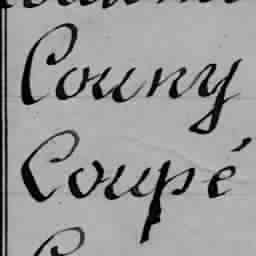 Couny
Coupé